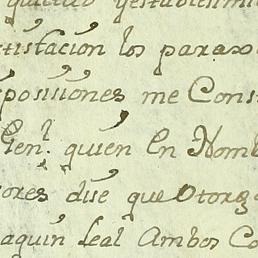 tisfacion los parax
posisiones me Cons
Ten.l quien En Nomb
ores dise que Otorg
aquin Leal Ambos Co